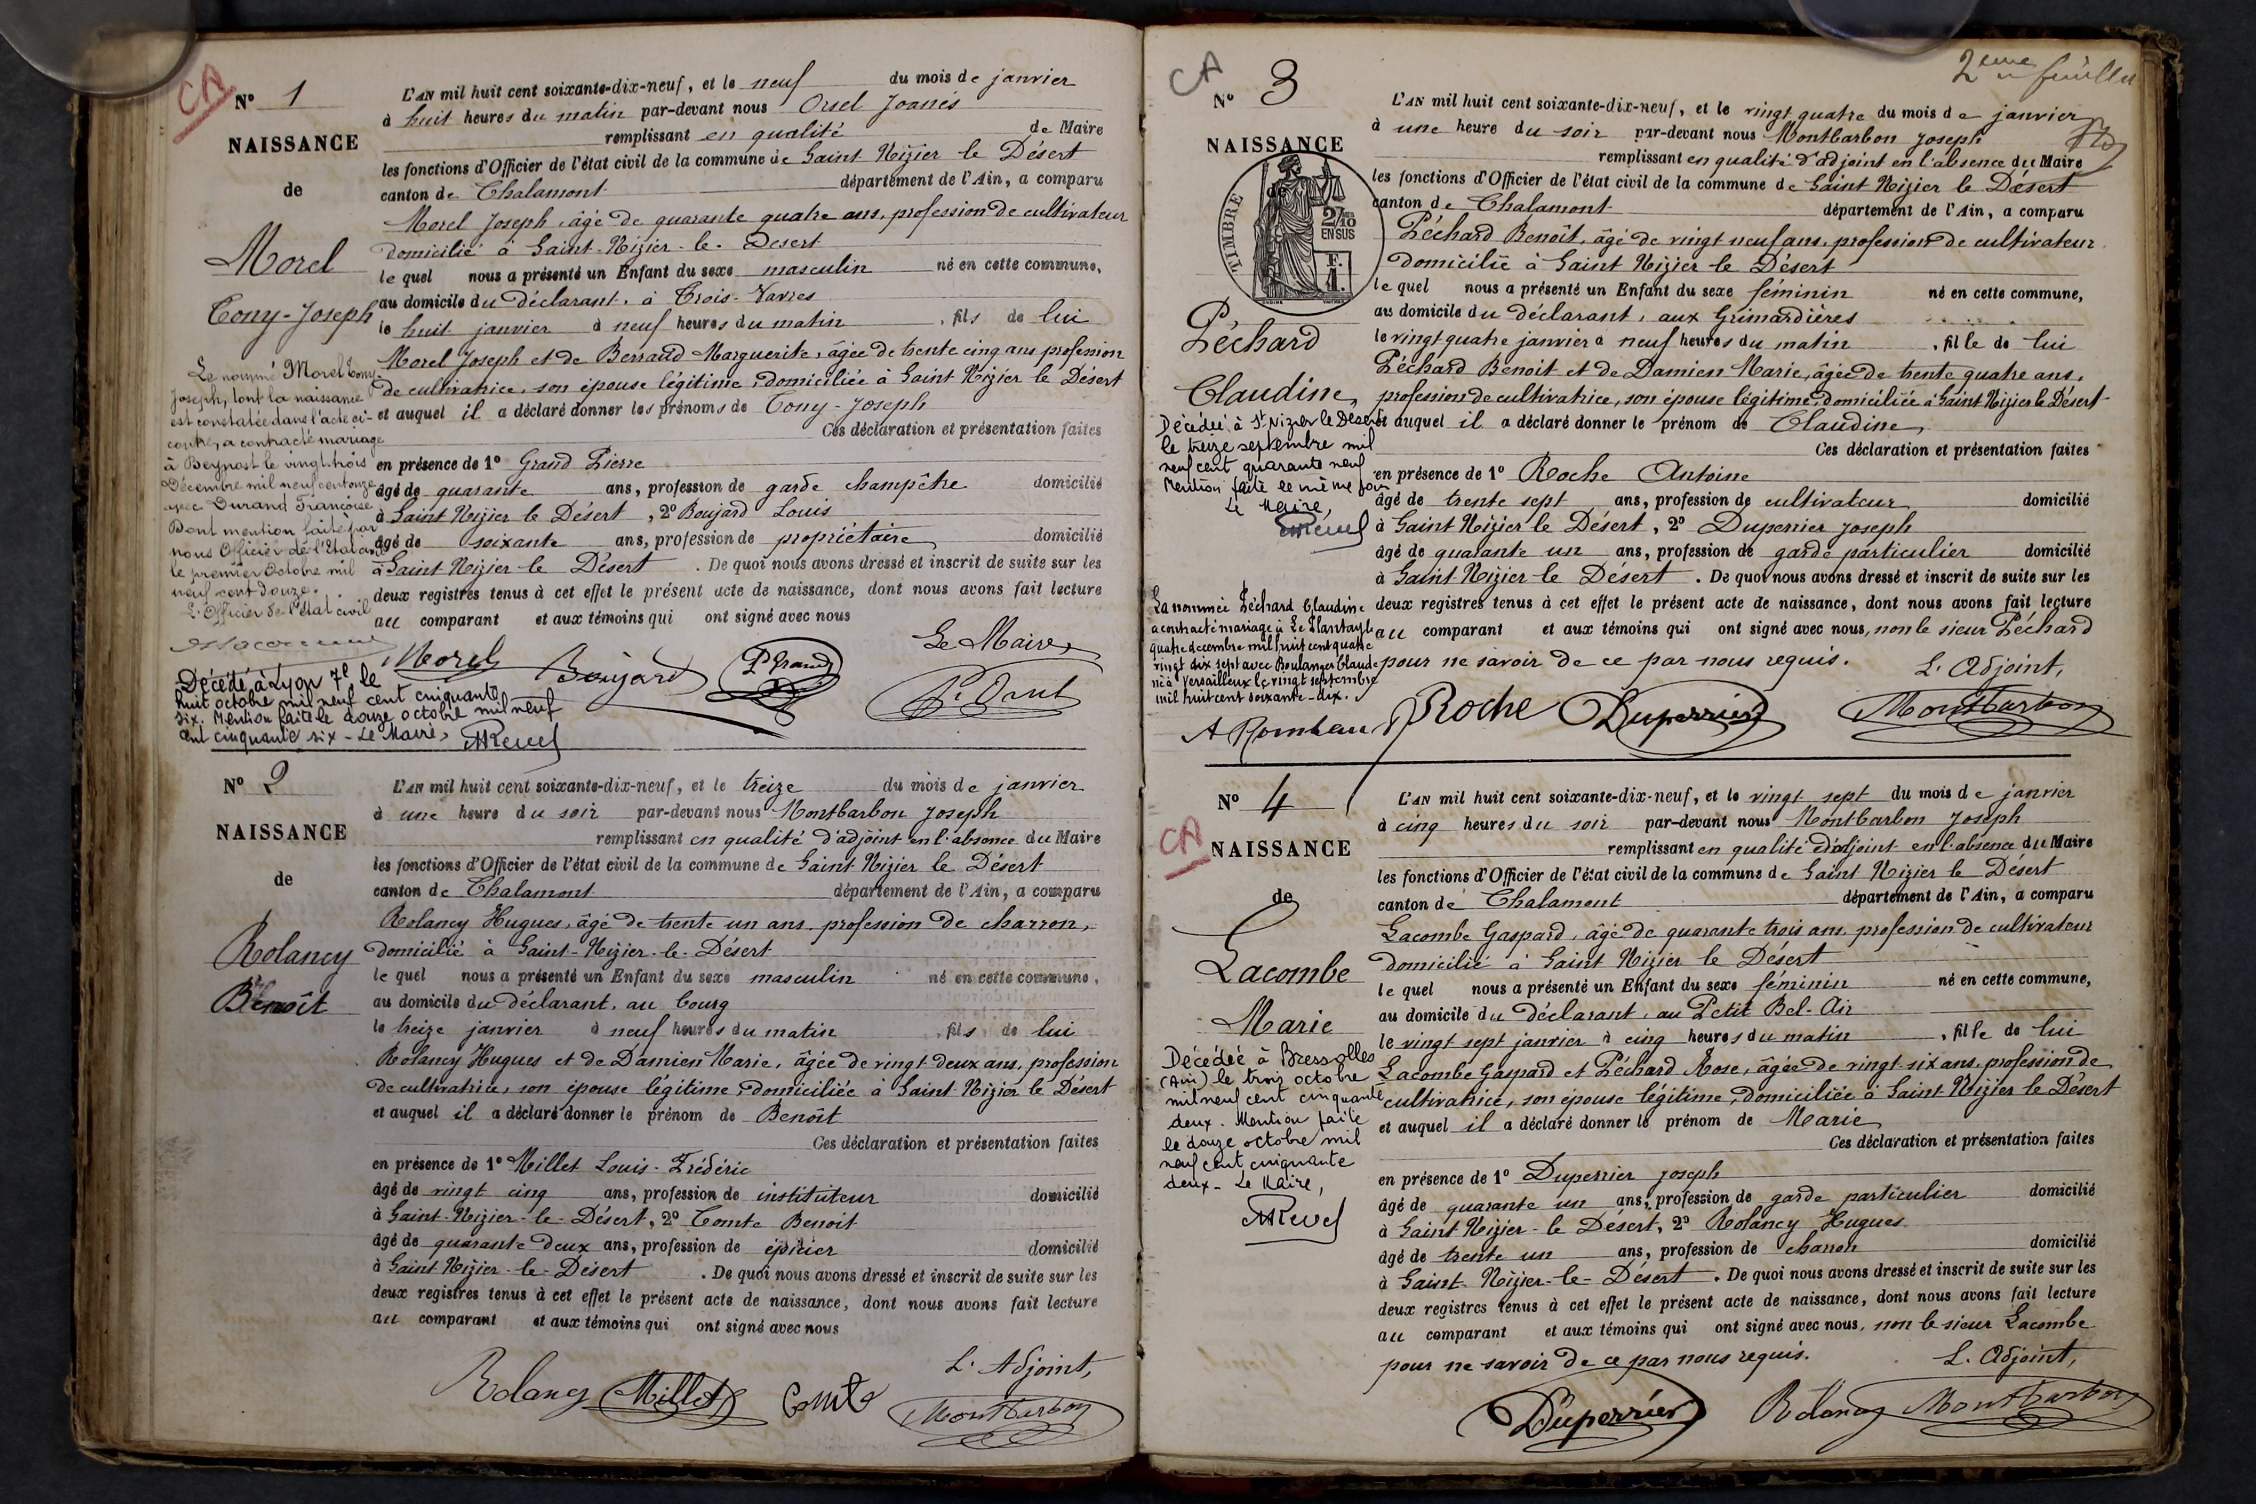 CA
N° 1
NAISSANCE
de
Morel
Tony-Joseph
Le nommé Morel Tony-
Joseph, dont la naissance
est constatée dans l'acte ci-
contre, a contracté mariage
à Beynost le vingt-trois
Décembre mil neuf cent onze
avec Durand Françoise
Dont mention faite par
nous Officier de l'Etat civil
le premier Octobre mil
neuf cent douze.
L'Officier de l'état civil
Décédé à Lyon 7e, le
huit octobre mil neuf cent cinquante
six. Mention faite le douze octobre mil neuf
cent cinquante six - Le Maire,
L'AN mil huit cent soixante-dix-neuf, et le neuf du mois de janvier
à huit heures du matin par-devant nous Orsel Joanès
remplissant en qualité de Maire
les fonctions d'Officier de l'état civil de la commune de Saint Nizier le Désert
canton de Chalamont département de l'Ain, a comparu
Morel Joseph, âgé de quarante quatre ans, profession de cultivateur
domicilié à Saint-Nizier-le-Désert
le quel nous a présenté un Enfant du sexe masculin né en cette commune,
au domicile du déclarant, à Trois-Vavres
le huit janvier à neuf heures du matin, fils de lui
Morel Joseph et de Berraud Marguerite, âgée de trente cinq ans profession
de cultivatrice, son épouse légitime, domiciliée à Saint Nizier le Désert
et auquel il a déclaré donner les prénoms de Tony-Joseph
Ces déclaration et présentation faites
en présence de 1° Grand Pierre
âgé de quarante ans, profession de garde champêtre domicilié
à Saint Nizier le Désert, 2° Boujard Louis
âgé de soixante ans, profession de propriétaire domicilié
à Saint Nizier le Désert. De quoi nous avons dressé et inscrit de suite sur les
deux registres tenus à cet effet le présent acte de naissance, dont nous avons fait lecture
au comparant et aux témoins qui ont signé avec nous
Le Maire
Morel Boujard P. Grand
N° 2
NAISSANCE
de
Rolancy
Benoît
L'AN mil huit cent soixante-dix-neuf, et le treize du mois de janvier
à une heure du soir par-devant nous Montbarbon Joseph
remplissant en qualité d'adjoint en l'absence du Maire
les fonctions d'Officier de l'état civil de la commune de Saint Nizier le Désert
canton de Chalamont département de l'Ain, a comparu
Rolancy Hugues, âgé de trente un ans, profession de charron,
domicilié à Saint-Nizier-le-Désert
le quel nous a présenté un Enfant du sexe masculin né en cette commune,
au domicile du déclarant, au bourg
le treize janvier à neuf heures du matin, fils de lui
Rolancy Hugues et de Damien Marie, âgée de vingt deux ans, profession
de cultivatrice, son épouse légitime, domiciliée à Saint Nizier le Désert
et auquel il a déclaré donner le prénom de Benoît
Ces déclaration et présentation faites
en présence de 1° Millet Louis-Frédéric
âgé de vingt cinq ans, profession de instituteur domicilié
à Saint-Nizier-le-Désert, 2° Comte Benoit
âgé de quarante deux ans, profession de épicier domicilié
à Saint Nizier-le-Désert. De quoi nous avons dressé et inscrit de suite sur les
deux registres tenus à cet effet le présent acte de naissance, dont nous avons fait lecture
au comparant et aux témoins qui ont signé avec nous
L'Adjoint,
Rolancy Millet Comte Montbarbon
2eme feuille
CA
N° 3
NAISSANCE
de
TIMBRE
2/10
EN SUS
F.
1.
Péchard
Claudine,
Décédée à St Nizier le Désert
le treize septembre mil
neuf cent quarante neuf
Mention faite le même jour
Le Maire,
La nommée Péchard Claudine
a contracté mariage à Le Plantay le
quatre decembre mil huit cent quatre
vingt dix sept avec Boulanger Claude
né à Versailleux le vingt septembre
mil huit cent soixante-dix.
L'AN mil huit cent soixante-dix-neuf, et le vingt quatre du mois de janvier
à une heure du soir par-devant nous Montbarbon Joseph
remplissant en qualité d'adjoint en l'absence du Maire
les fonctions d'Officier de l'état civil de la commune de Saint Nizier le Désert
canton de Chalamont département de l'Ain, a comparu
Péchard Benoît, âgé de vingt neuf ans, profession de cultivateur
domicilié à Saint Nizier le Désert
le quel nous a présenté un Enfant du sexe féminin né en cette commune,
au domicile du déclarant, aux Grimardières
le vingt quatre janvier à neuf heures du matin, fille de lui
Péchard Benoit et de Damien Marie, âgée de trente quatre ans,
profession de cultivatrice, son épouse légitime, domiciliée à Saint Nizier le Désert
et auquel il a déclaré donner le prénom de Claudine,
Ces déclaration et présentation faites
en présence de 1° Roche Antoine
âgé de trente sept ans, profession de cultivateur domicilié
à Saint Nizier le Désert, 2° Duperrier Joseph
âgé de quarante un ans, profession de garde particulier domicilié
à Saint Nizier le Désert. De quoi nous avons dressé et inscrit de suite sur les
deux registres tenus à cet effet le présent acte de naissance, dont nous avons fait lecture
au comparant et aux témoins qui ont signé avec nous, non le sieur Péchard
pour ne savoir de ce par nous requis.
L'Adjoint,
Roche Duperrier Montbarbon
CA
N° 4
NAISSANCE
de
Lacombe
Marie
Décédée à Bressolles
(Ain) le trois octobre
mil neuf cent cinquante
deux. Mention faite
le douze octobre mil
neuf cent cinquante
deux - Le Maire,
L'AN mil huit cent soixante-dix-neuf, et le vingt sept du mois de janvier
à cinq heures du soir par-devant nous Montbarbon Joseph
remplissant en qualité d'adjoint en l'absence du Maire
les fonctions d'Officier de l'état civil de la commune de Saint Nizier le Désert
canton de Chalamont département de l'Ain, a comparu
Lacombe Gaspard, âgé de quarante trois ans, profession de cultivateur
domicilié à Saint Nizier le Désert
le quel nous a présenté un Enfant du sexe féminin né en cette commune,
au domicile du déclarant, au Petit Bel-Air
le vingt sept janvier à cinq heures du matin, fille de lui
Lacombe Gaspard et Péchard Rose, âgée de vingt six ans, profession de
cultivatrice, son épouse légitime, domiciliée à Saint-Nizier le Désert
et auquel il a déclaré donner le prénom de Marie
Ces déclaration et présentation faites
en présence de 1° Duperrier Joseph
âgé de quarante un ans, profession de garde particulier domicilié
à Saint Nizier-le Désert, 2° Rolancy Hugues
âgé de trente un ans, profession de charron domicilié
à Saint-Nizier-le-Désert. De quoi nous avons dressé et inscrit de suite sur les
deux registres tenus à cet effet le présent acte de naissance, dont nous avons fait lecture
au comparant et aux témoins qui ont signé avec nous, non le sieur Lacombe
pour ne savoir de ce par nous requis.
L'Adjoint,
Duperrier Rolancy Montbarbon